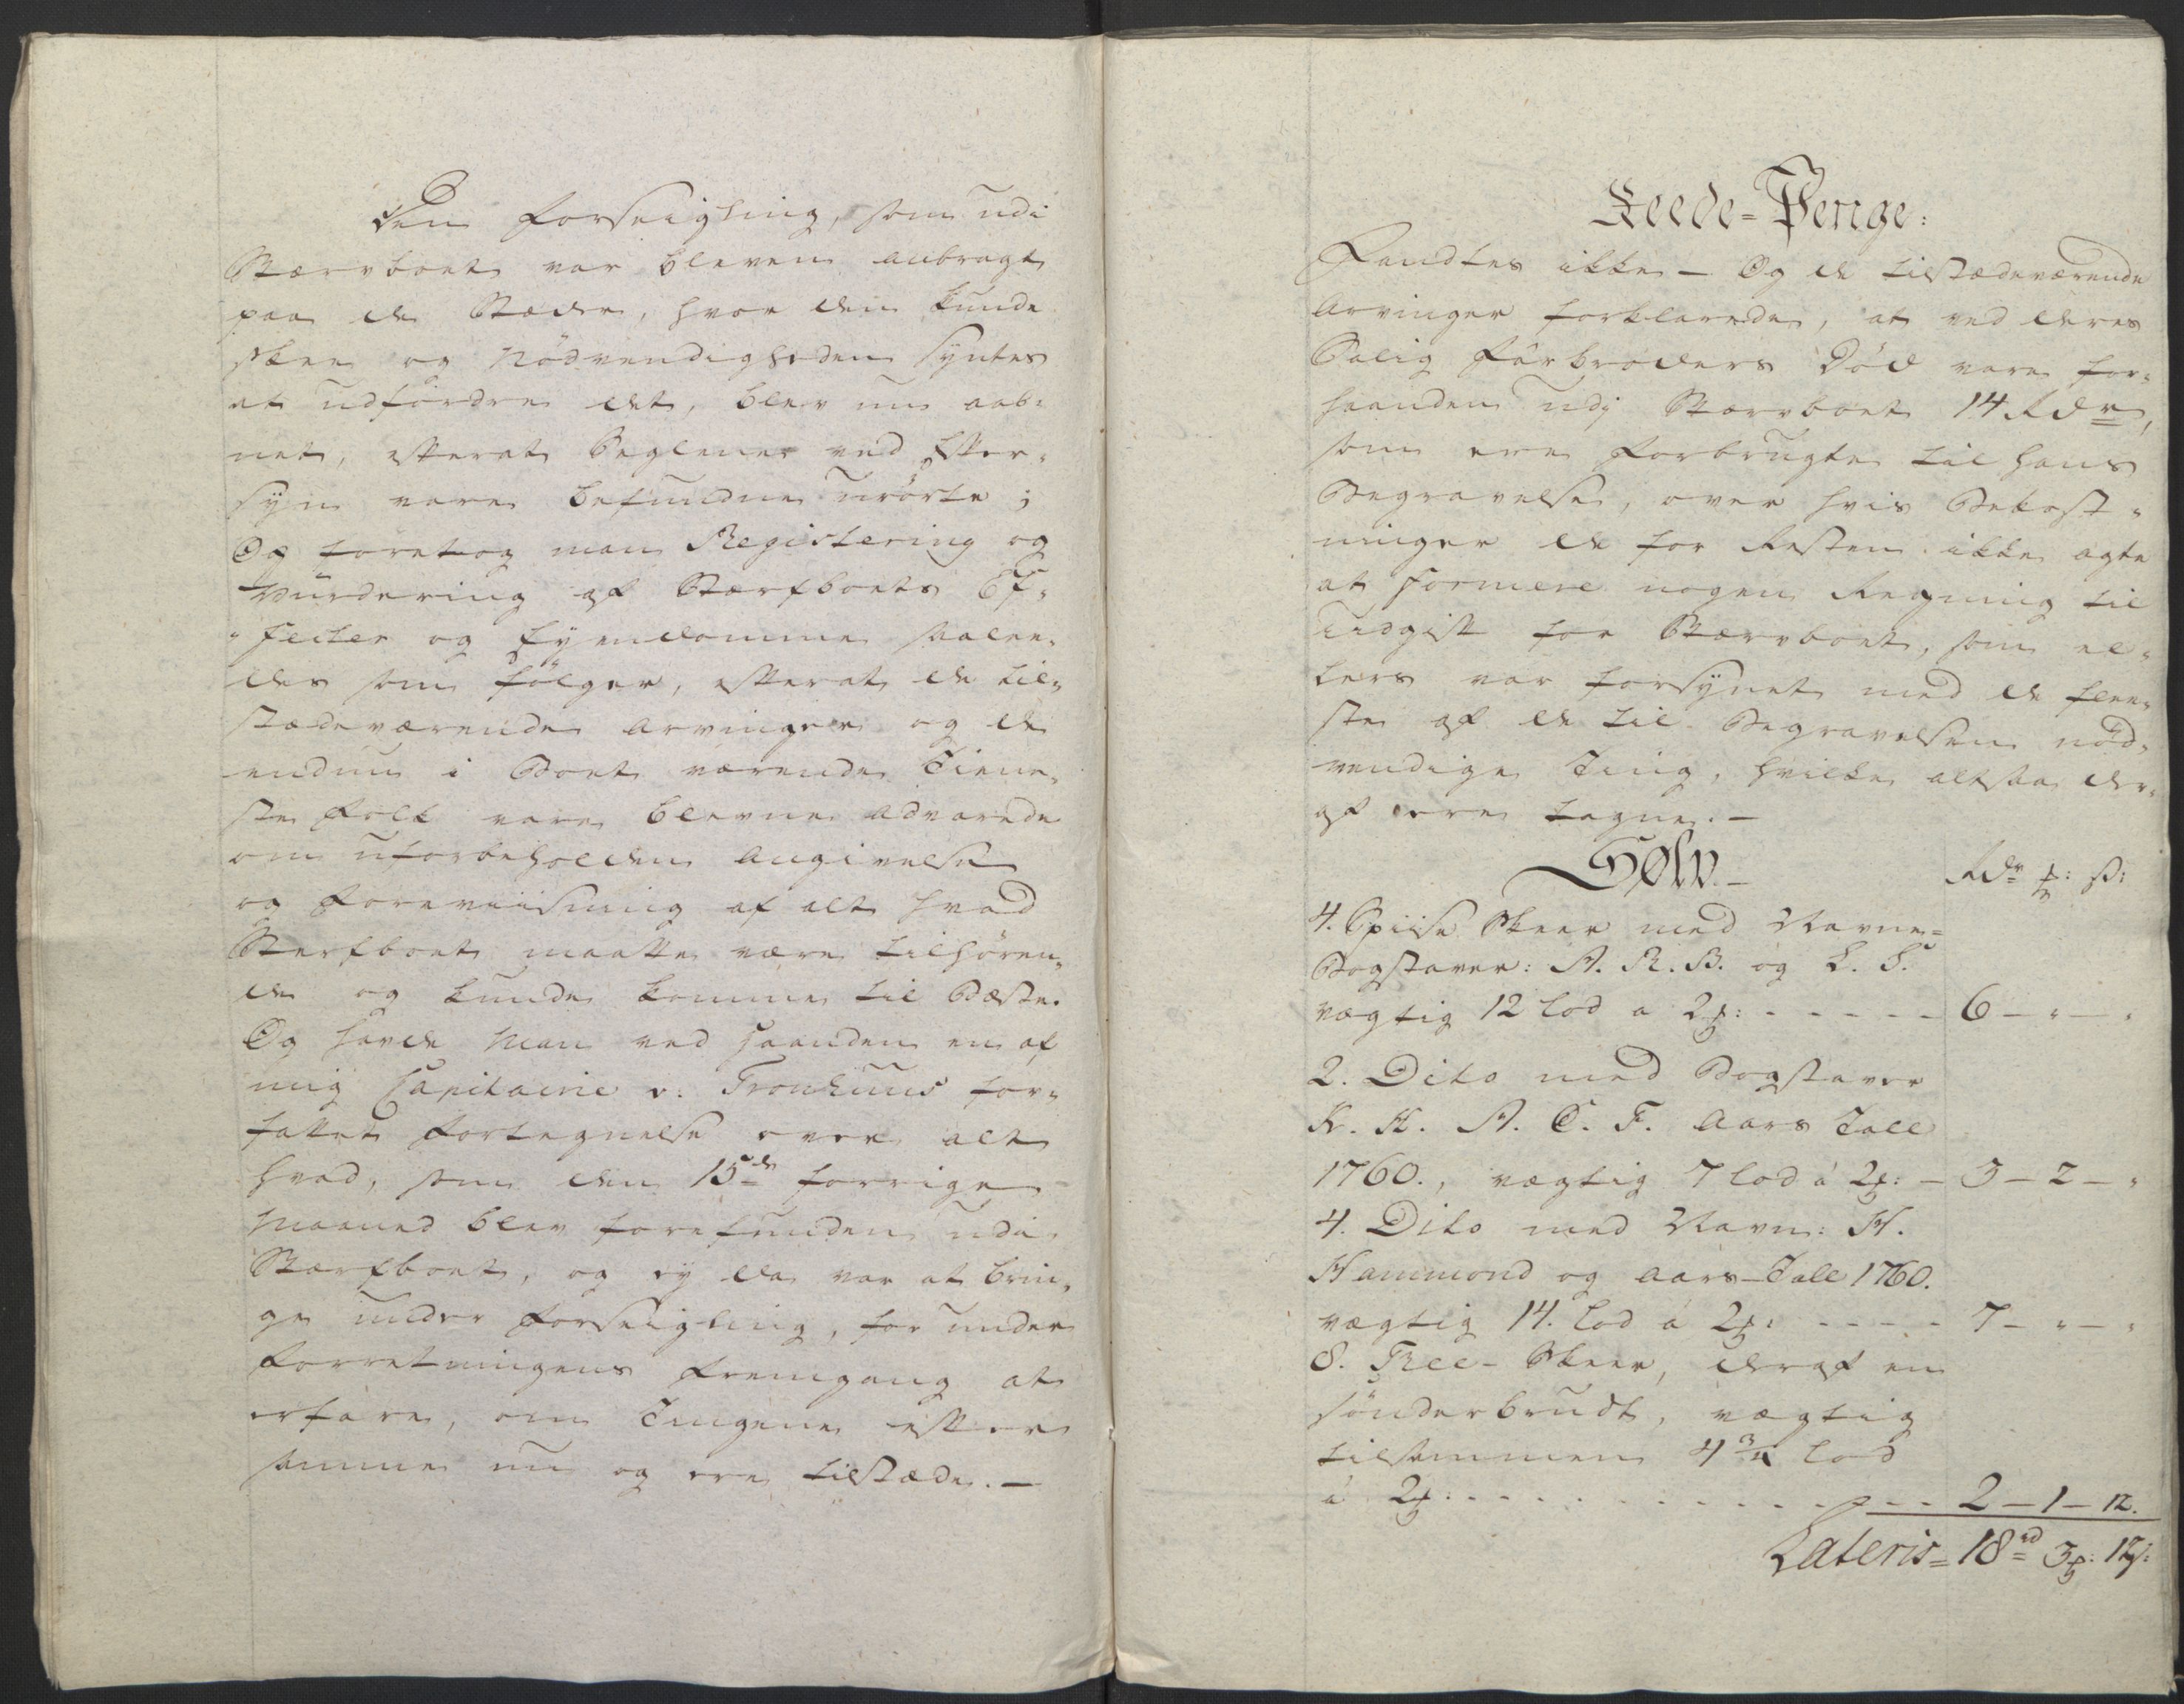 Den Forseigling, som udi
Stervboet var bleven anbragt
paa de Stæder, hvor den kunde
skee og Nödvendigheden syntes
at udfordre det, blev nu aab-
net, efterat Seglene ved Efter-
syn vare befundne urörte;
Og foretog man Registering og
Vurdering af Sterfboets Ef-
fecter og Eyendomme saalee-
des som fölger, efterat de til-
stædeværende Arvinger og de
endnu i Boet værende Tiene-
ste Folk vare blevne advarede
om uforbeholden Angivelse
og Foreviisning af alt hvad
Sterfboet maatte være tilhören-
de og kunde komme til Beste.
Og havde man ved Haanden en af
mig Capitaine v: Tronhuus for-
fattet Fortegnelse over alt
hvad, som den 15de forrige
Maaned blev forefunden udi
Sterfboet, og ey da var at brin-
ge under Forseigling, for under
Forretningens Fremgang at
erfare, om Tingene efter
samme nu og ere tilstæde. —
Reede-Penge:
Fandtes ikke — Og de tilstædeværende
Arvinger forklarede, at ved deres
Salig Farbroders Död vare for-
haanden udj Stervboet 14 Rdr,
som ere forbrugte til hans
Begravelse, over hvis Bekost-
ninger de for Resten ikke agte
at formere nogen Regning til
Udgift for Stervboet, som el-
lers var forsynet med de flee-
ste af de til Begravelsen nöd-
vendige Ting, hvilke altsaa der-
af ere tagne. —
Sølv. — Rdr ꝑ: ß:
4. Spiise Skeer med Navne-
Bogstaver: A. R. B. og L. S.
vægtig 12 Lod a 2ꝑ: - - - - - 6 — " — "
2. Dito med Bogstaver
K. K. A. C. F. Aars Tall
1760., vægtig 7 Lod á 2ꝑ: — 3 — 2 — "
4. Dito med Navn: H.
Hammond og Aars-Tall 1760.
vægtig 14. Lod á 2ꝑ: - - - - 7 — " — "
8. Thee-Skeer, deraf en
sönderbrudt, vægtig
tilsammen 4 3/4 Lod
á 2ꝑ: - - - - - - - - - - 2 — 1 — 12.
Lateris = 18rd 3ꝑ: 12ß: